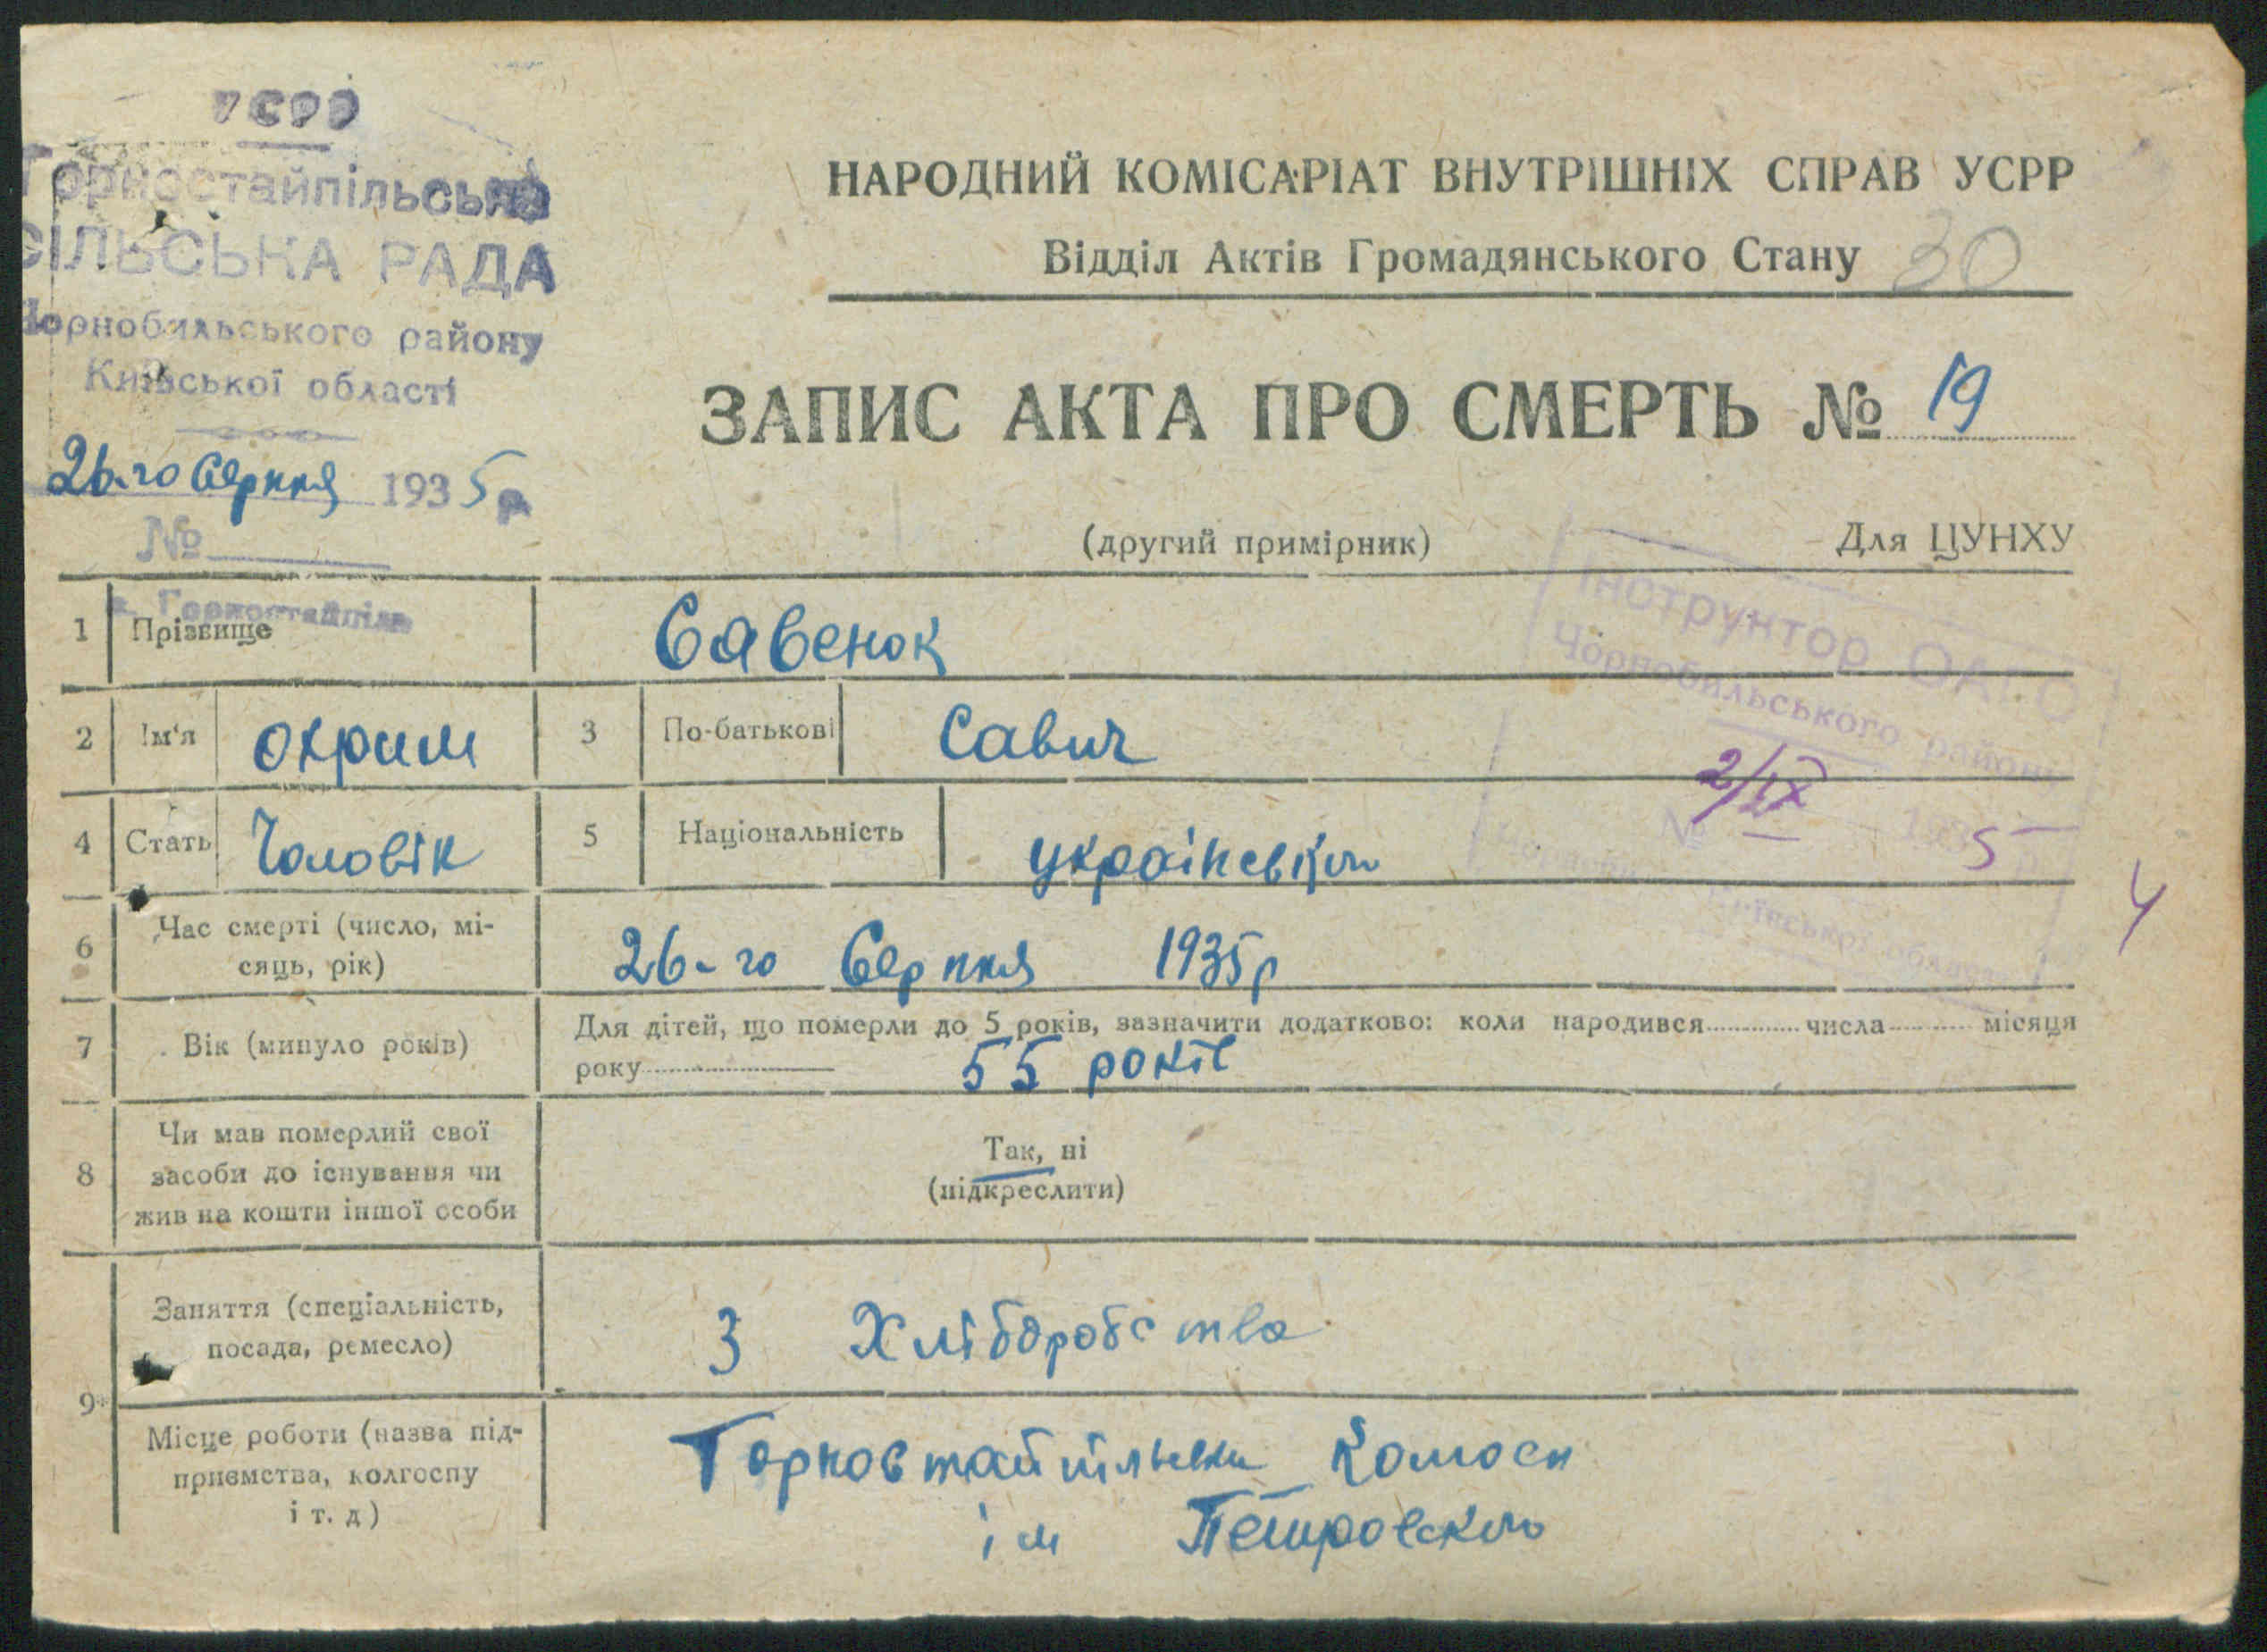 УСРР
Горностайпільська
СІЛЬСЬКА РАДА
Чорнобильського району
Київської області
26-го Серпня 1935 р
№
с. Горностайпіль
НАРОДНИЙ КОМІСАРІАТ ВНУТРІШНІХ СПРАВ УСРР
Відділ Актів Громадянського Стану 30
ЗАПИС АКТА ПРО СМЕРТЬ № 19
(другий примірник) Для ЦУНХУ
Інструктор ОАГС
Чорнобильського району
2/IX 5
№
Київської області
4
1 Прізвище Савенок
2 Ім'я Охрим 3 По-батькові Савич
4 Стать Чоловік 5 Національність
6 Час смерті (число, мі-
сяць, рік) 26-го Серпня 1935р
7 Вік (минуло років) Для дітей, що померли до 5 років, зазначити додатково: коли народився числа місяця
року 55 років
8 Чи мав померлий свої
засоби до існування чи
жив на кошти іншої особи
Так, ні
(підкреслити)
9 Заняття (спеціальність,
посада, ремесло) З Хліборобства
Місце роботи (назва під-
приємства, колгоспу
і т. д)
ім